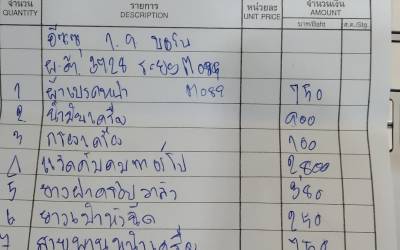 จำนวน รายการ หน่วยละ จำนวนเงิน
QUANTITY DESCRIPTION UNIT PRICE AMOUNT
บาท/Baht ส.ต./Stg.
อีซูซุ
ผ.ศ. 3728 ระยอง
1 ผ้าเบรคหน้า 750
2 น้ำมันเครื่อง 900
3 กรองเครื่อง 100
4 2,800
5 ยางฝาครอบวาล์ว 380
6 ยางเบ้าหัวฉีด 250
7 สายพานหน้าเครื่อง 750